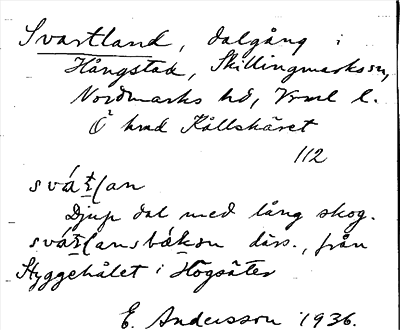 Svartland, dalgång i
Hångstad, Skillingmarks sn,
Nordmarks hd, Vrml l.
Ö hmd Källskäret
112
svát̠ʃan
Djup dal med lång skog.
svát̠ʃansbákən därs., från
Styggehålet i Högsäter
E. Andersson 1936.